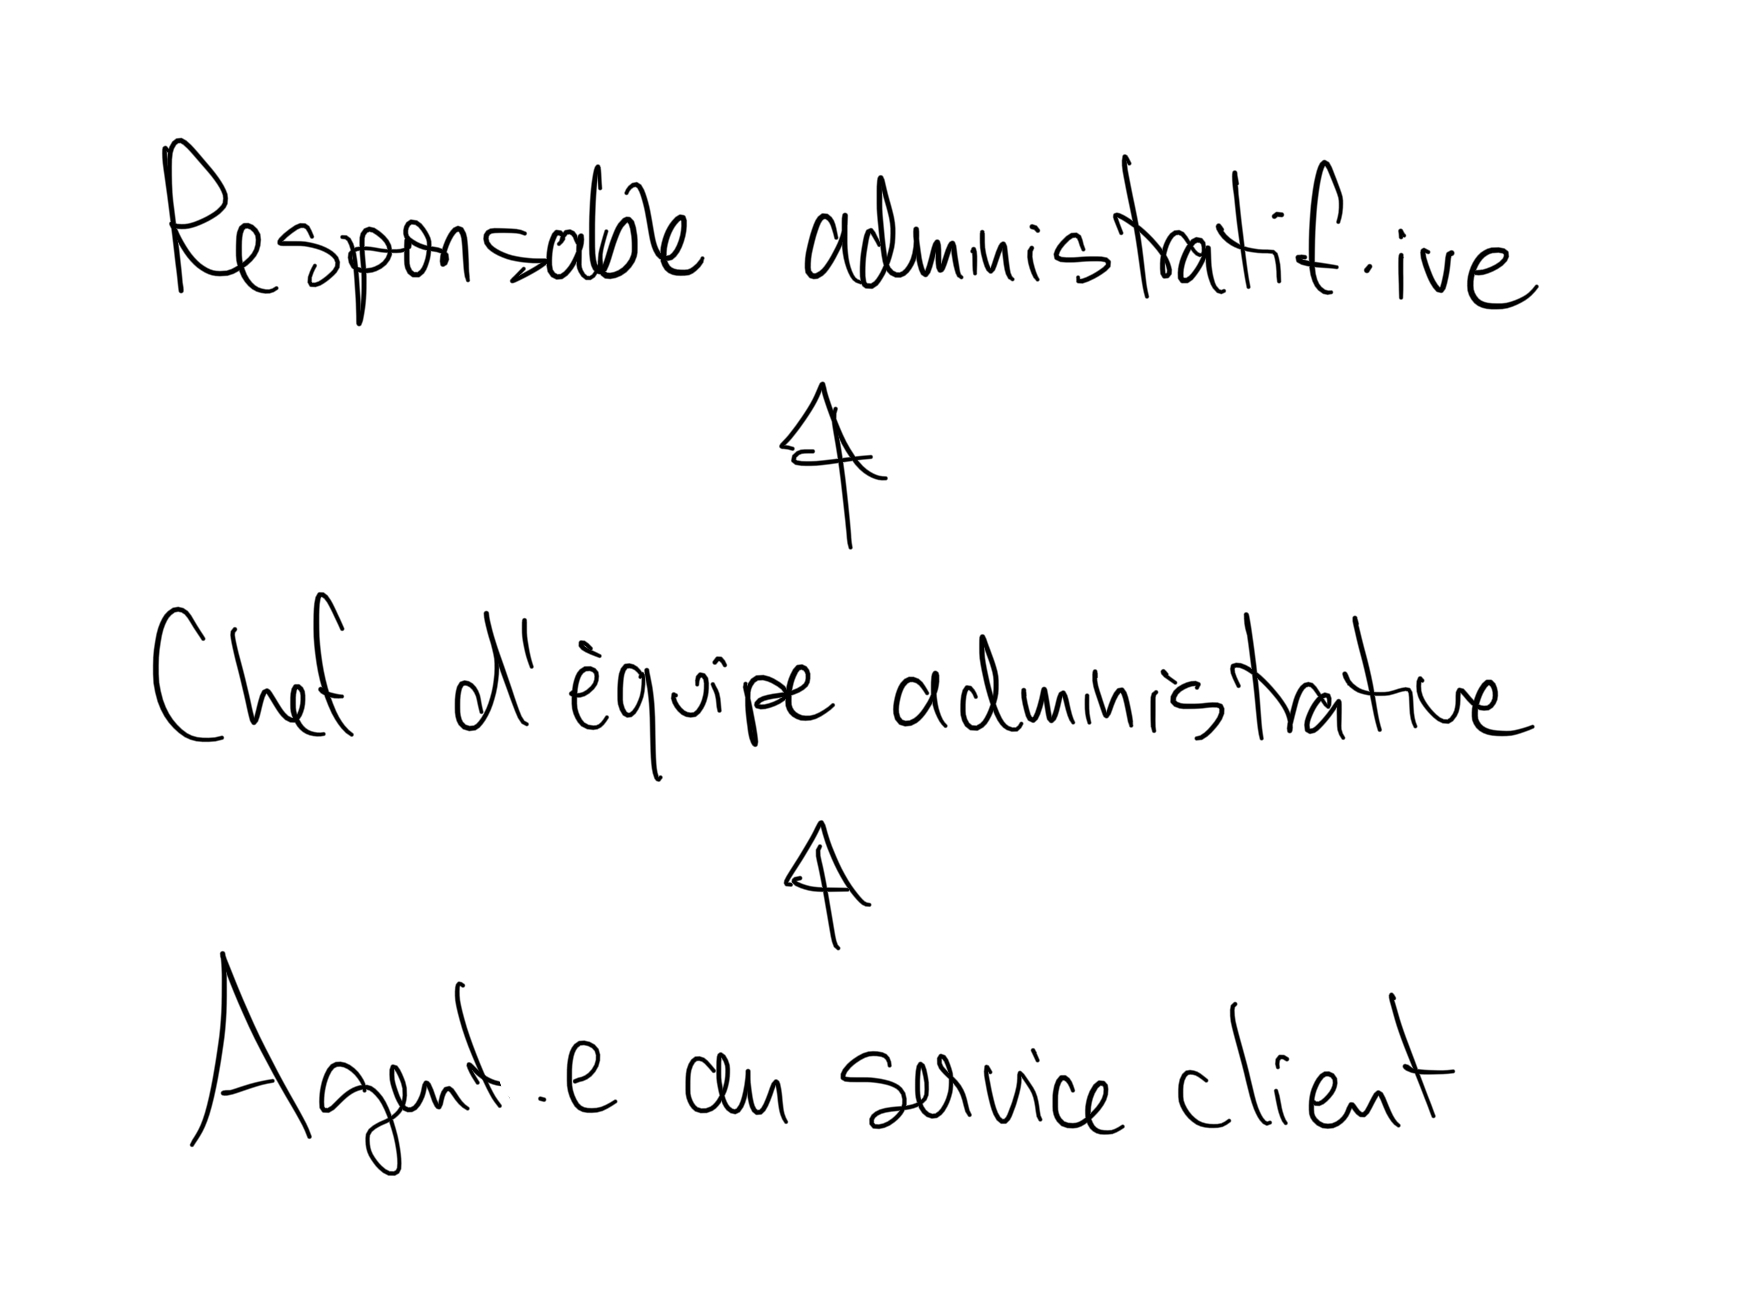 Responsable administratif.ive
Chef d'équipe administrative
Agent.e au service client